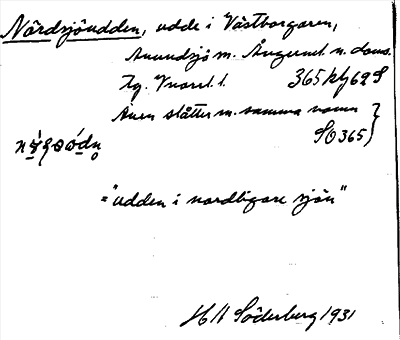 Nördsjöudden, udde i Västborgaren,
Anundsjö m. Ångerml. n. doms.
365 kbj 62 S
Även slåtter m. samma namn
SO 365
="udden i nordligare sjön"
H H Söderberg 1931